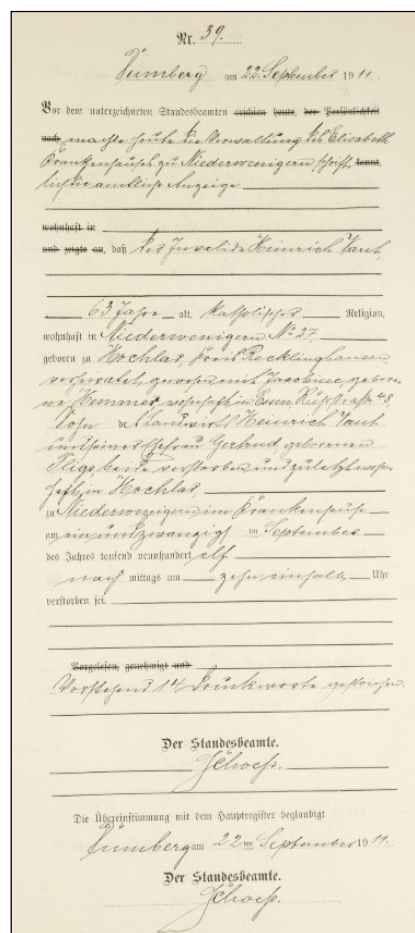 Nr. 39.
Dumberg am 22. September 1911.
Vor dem unterzeichneten Standesbeamten erschien heute, der Persönlichkeit
nach machte heute die Verwaltung des Elisabeth
Krankenhauses zu Niederwenigern schrift- kannt,
liche amtliche Anzeige
wohnhaft in
und zeigte an, daß der Invalide Heinrich
63 Jahre alt, katholischer Religion,
wohnhaft in Niederwenigern No 27,
geboren zu Hochlar, Kreis Recklinghausen
verheiratet gewesen mit Jacobine, gebore-
ne wohnhaft in Essen, 48,
Sohn des Landwirts Heinrich
und seiner Ehefrau Gertrud geborenen
beide verstorben und zuletzt wohn-
haft in Hochlar,
zu Niederwenigern im Krankenhause
am ein und zwanzigsten September
des Jahres tausend neunhundert elf
nach mittags um zehn einhalb Uhr
verstorben sei.
Vorgelesen, genehmigt und
Vorstehend 14 Druckworte gestrichen.
Der Standesbeamte.
Die Übereinstimmung mit dem Hauptregister beglaubigt
Dumberg am 22ten September 1911.
Der Standesbeamte.